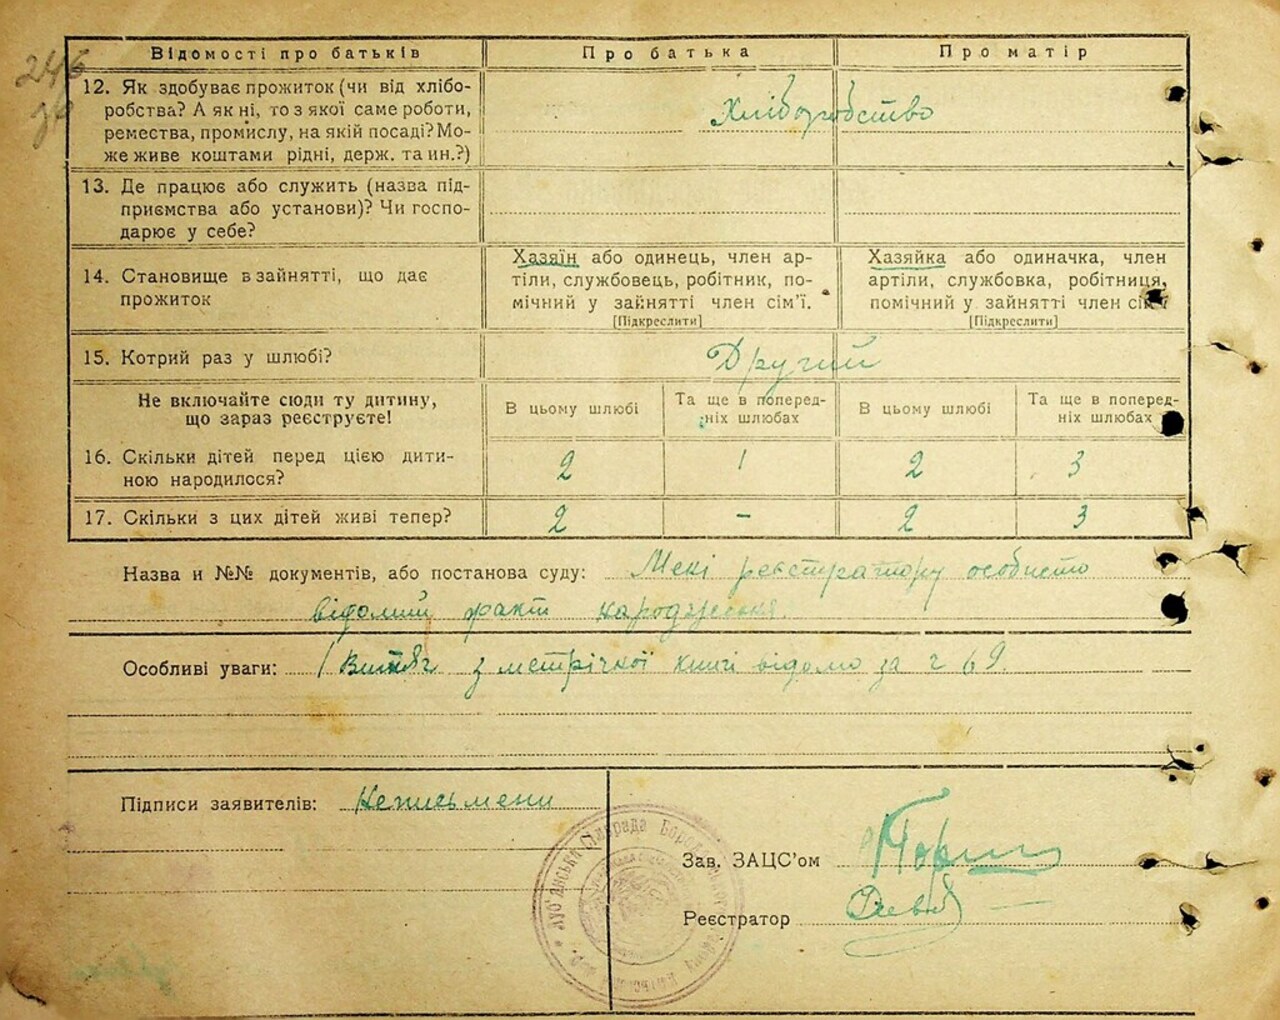 246
Відомості про батьків
Про батька
Про матір
12. Як здобуває прожиток (чи від хлібо-
робства? А як ні, то з якої саме роботи,
ремества, промислу, на якій посаді? Мо-
же живе коштами рідні, держ. та ин.?)
Хліборобство
13. Де працює або служить (назва під-
приємства або установи)? Чи госпо-
дарює у себе?
14. Становище в зайнятті, що дає
прожиток
Хазяїн або одинець, член ар-
тіли, службовець, робітник, по-
мічний у зайнятті член сім'ї.
[Підкреслити]
Хазяйка або одиначка, член
артіли, службовка, робітниця,
помічний у зайнятті член сім'ї
[Підкреслити]
15. Котрий раз у шлюбі?
Другий
Не включайте сюди ту дитину,
що зараз реєструєте!
В цьому шлюбі
Та ще в поперед-
ніх шлюбах
В цьому шлюбі
Та ще в поперед-
ніх шлюбах
16. Скільки дітей перед цією дити-
ною народилося?
2
1
2
3
17. Скільки з цих дітей живі тепер?
2
-
2
3
Назва и №№ документів, або постанова суду: Мені реєстратору особисто
відомий факт народження.
Особливі уваги: Витяг з метрічної книгі відомо за ч 69.
Підписи заявителів: Неписьмени
Зав. ЗАЦС'ом
Реєстратор
Луб'янська Сільрада Бородянського